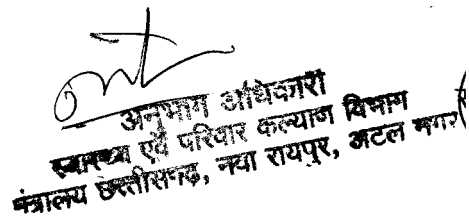 अनुभाग अधिकारी
स्वास्थ्य एवं परिवार कल्याण विभाग
मंत्रालय छत्तीसगढ़, नवा रायपुर, अटल नगर